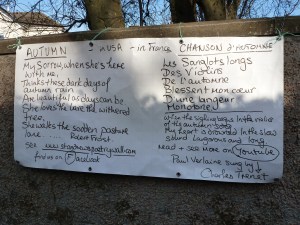 AUTUMN in USA - in France CHANSON d'AUTOMNE
My Sorrow, when she's here
with me,
Thinks these dark days of
autumn rain
Are beautiful as days can be
She loves the bare, the withered
tree,
She walks the sodden pasture
lane
Robert Frost
See
find us on Facebook
Les Sanglots longs
Des Violins
De l'automne
Blessent mon coeur
D'une langeur
Monotone
When the sighing begins In the violins
of the autumn-song
My heart is drowned In the slow
sound Languorous and long
read + see more on Youtube
Paul Verlaine sung by
Charles Trenet